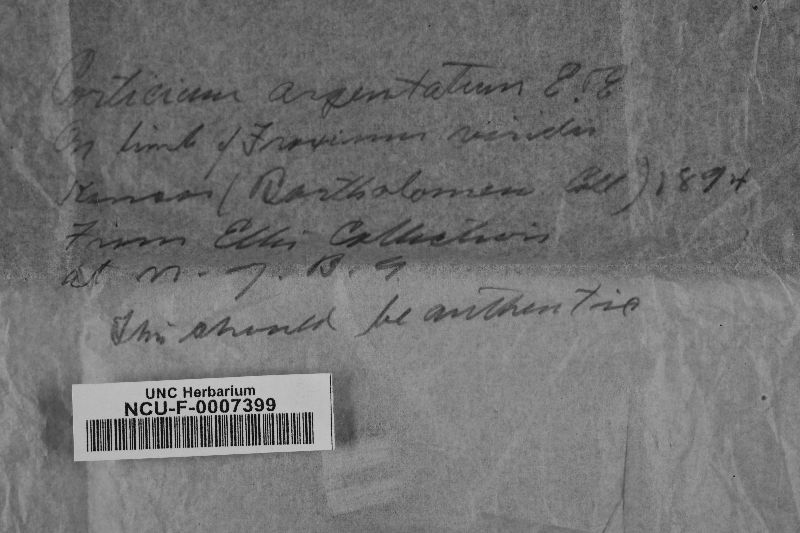 Corticium argentatum E. & E
On limb of Fraxinus viridis
Kansas (Bartholomew Coll) 1894
From Ellis Collections
at N. Y. B. G
This should be authentic
UNC Herbarium
NCU-F-0007399